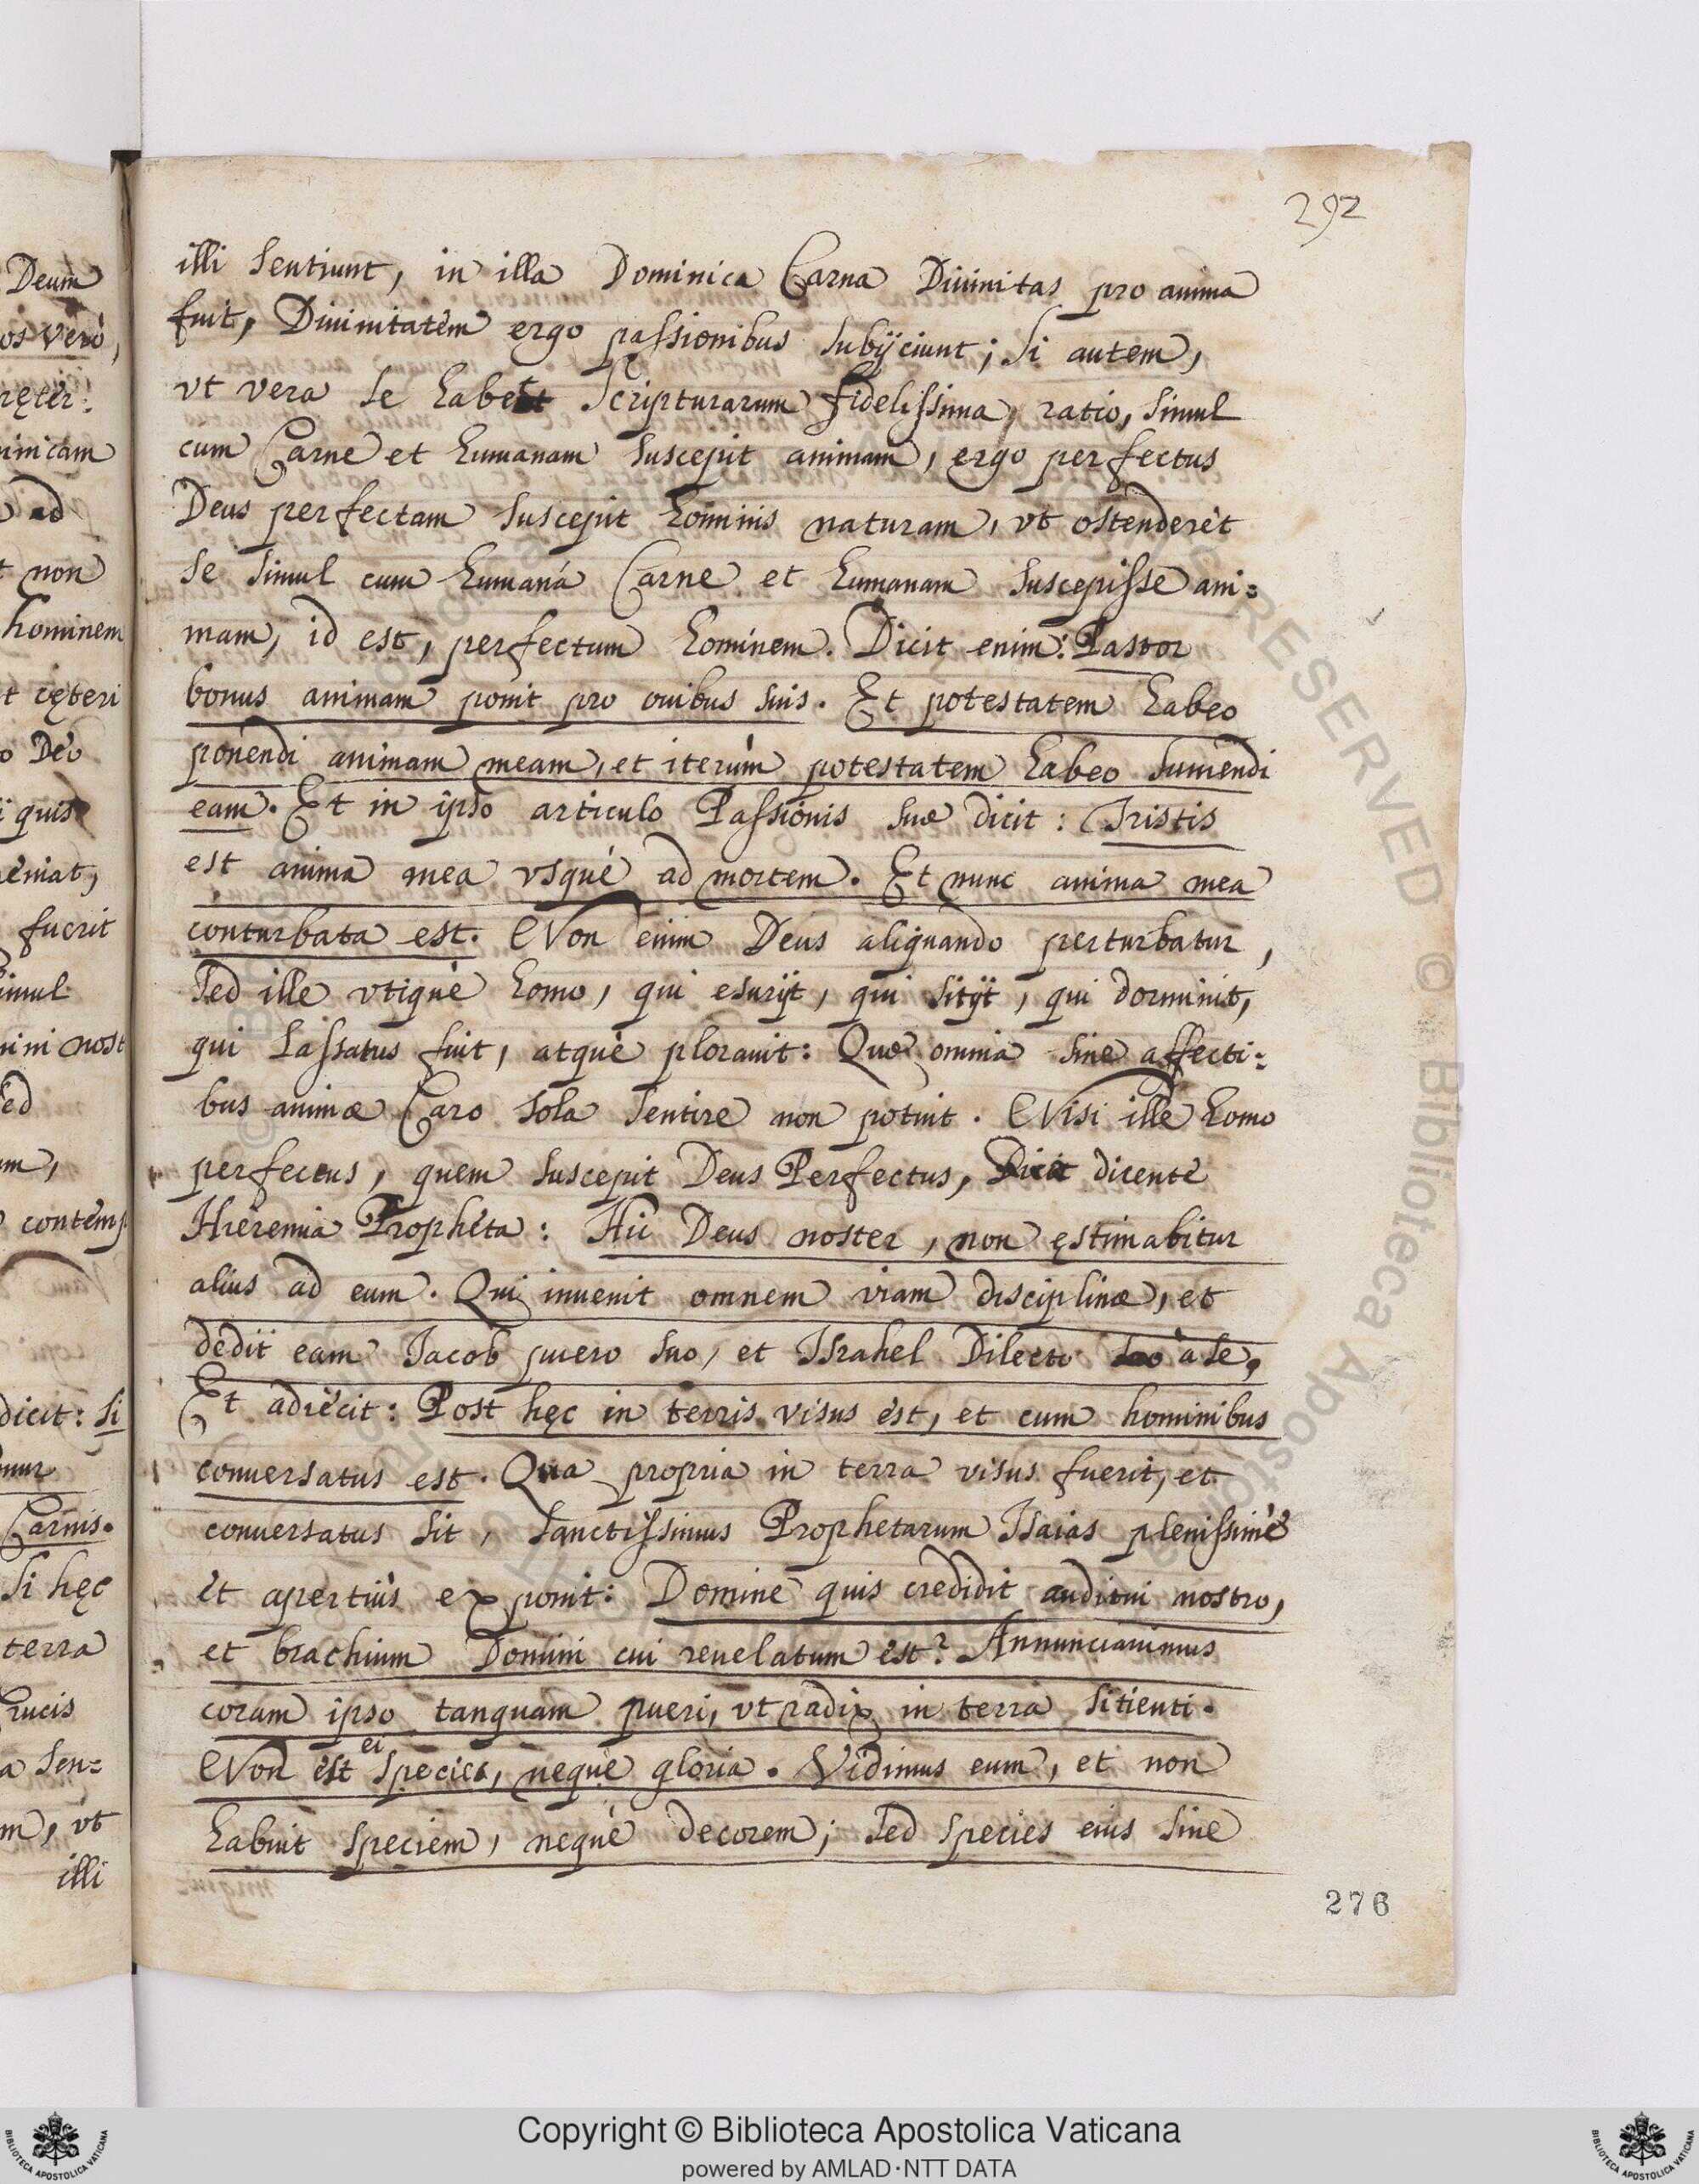 292
illi sentiunt, in illa Dominica Carna Diuinitas pro anima
fuit, Diuinitatem ergo passionibus subijciunt; si autem,
vt vera se habet Scripturarum fidelissima ratio, simul
cum Carne et humanam suscepit animam, ergo perfectus
Deus perfectam suscepit hominis naturam, vt ostenderet
se simul cum humanà Carne et humanam suscepisse ani=
mam, id est, perfectum hominem. Dicit enim: Pastor
bonus animam ponit pro ouibus suis. Et potestatem habeo
ponendi animam meam, et iterùm potestatem habeo sumendi
eam. Et in ipso articulo Passionis suæ dicit: Tristis
est anima mea vsquè ad mortem. Et nunc anima mea
conturbata est. Non enim Deus aliquando perturbatur,
sed ille vtiquè homo, qui esurijt, qui sitijt, qui dormiuit,
qui lassatus fuit, atquè plorauit: Quæ omnia sine affecti=
bus animæ Caro sola sentire non potuit. Nisi ille homo
perfectus, quem suscepit Deus Perfectus, dicente
Hieremia Propheta: Hic Deus noster, non ęstimabitur
alius ad eum. Qui inuenit omnem viam disciplinæ, et
dedit eam Jacob puero suo, et Israhel Dilecto à se,
Et adiecit: Post hęc in terris visus est, et cum hominibus
conuersatus est. Qua propria in terra visus fuerit, et
conuersatus sit, sanctissimus Prophetarum Isaias plenissimè
et apertiùs exponit: Domine quis credidit auditui nostro,
et brachium Domini cui reuelatum est? Annunciauimus
coram ipso tanquam pueri, vt radix in terra sitienti.
Non est ei species, nequè gloria. Vidimus eum, et non
habuit speciem, nequè decorem; sed species eius sine
276
Deum
os verò,
ręter:
minicam
ad
t non
hominem
t cęteri
o Deo
i quis
eniat,
fuerit
simul
mini nost
sed
um,
contemp
dicit: si
mur
Carnis.
si hęc
terra
Crucis
a sen=
m, vt
illi
Copyright © Biblioteca Apostolica Vaticana
powered by AMLAD·NTT DATA